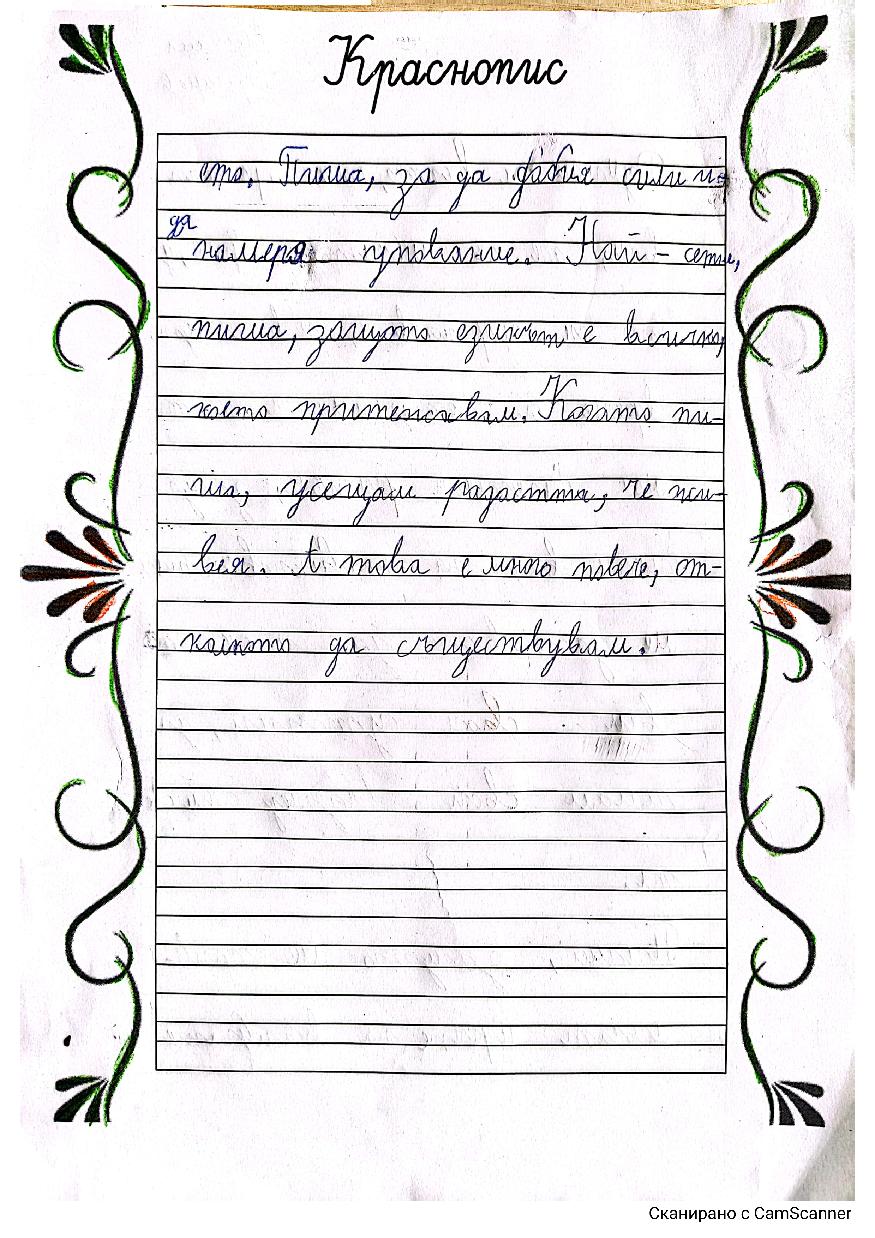 Краснопис
ето. Пиша, за да добия сили и
да
намеря упование. Най-сетне,
пиша, защото езикът е всичко,
което притежавам. Когато пи-
ша, усещам радостта, че жи-
вея. А това е много повече, от-
колкото да съществувам.
Сканирано с CamScanner